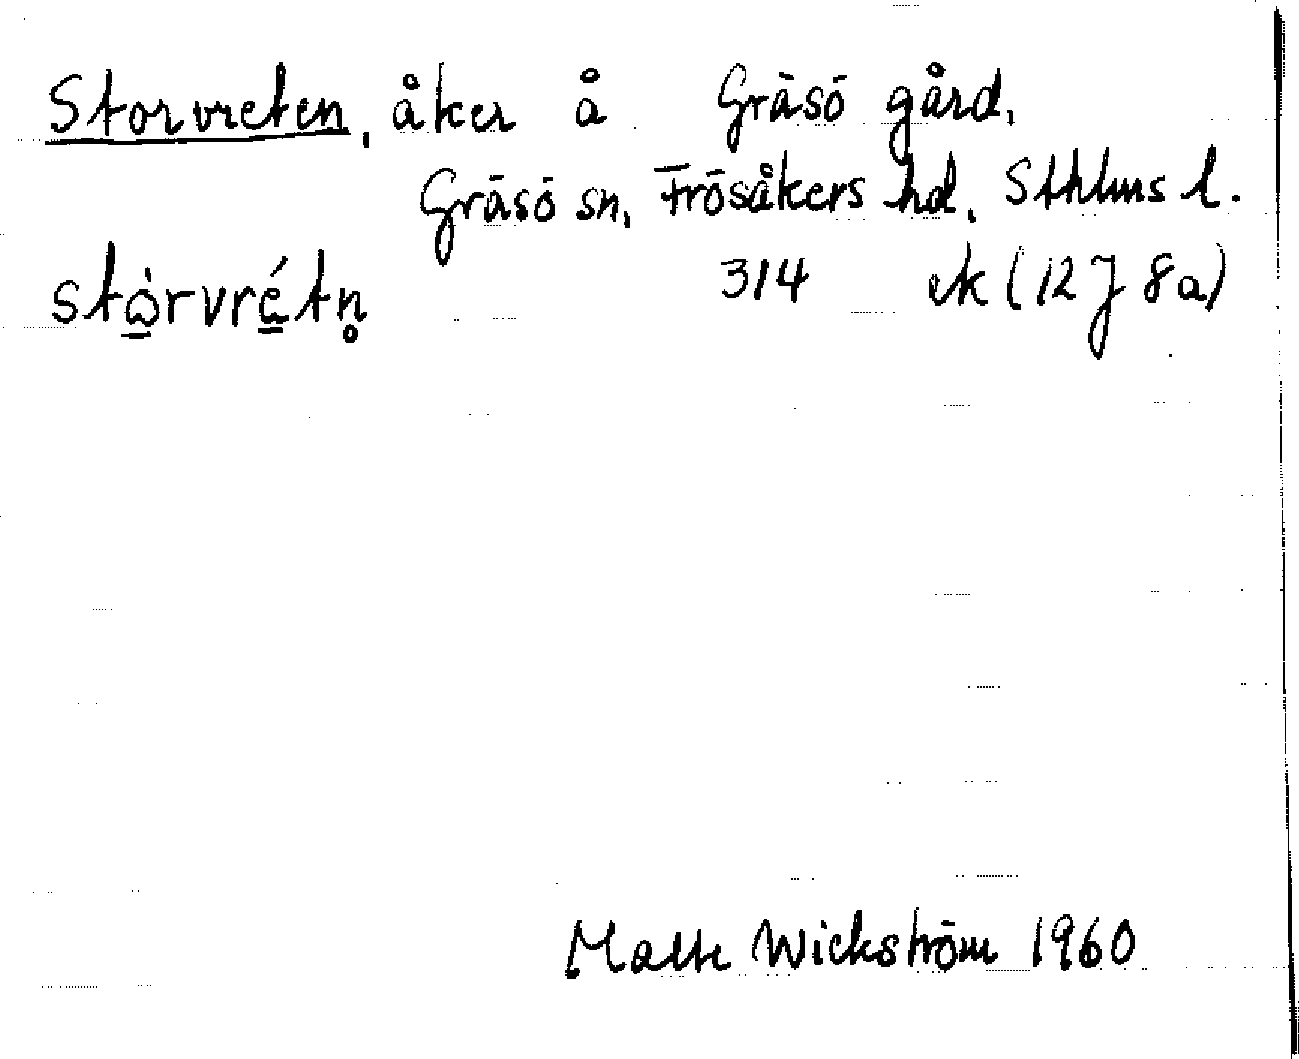 Storvreten, åker å Gräsö gård,
Gräsö sn, Frösåkers hd, Sthlms l.
stὼ̲rvré̲tn̥ 314 ek (12 J 8a)
Malte Wickström 1960